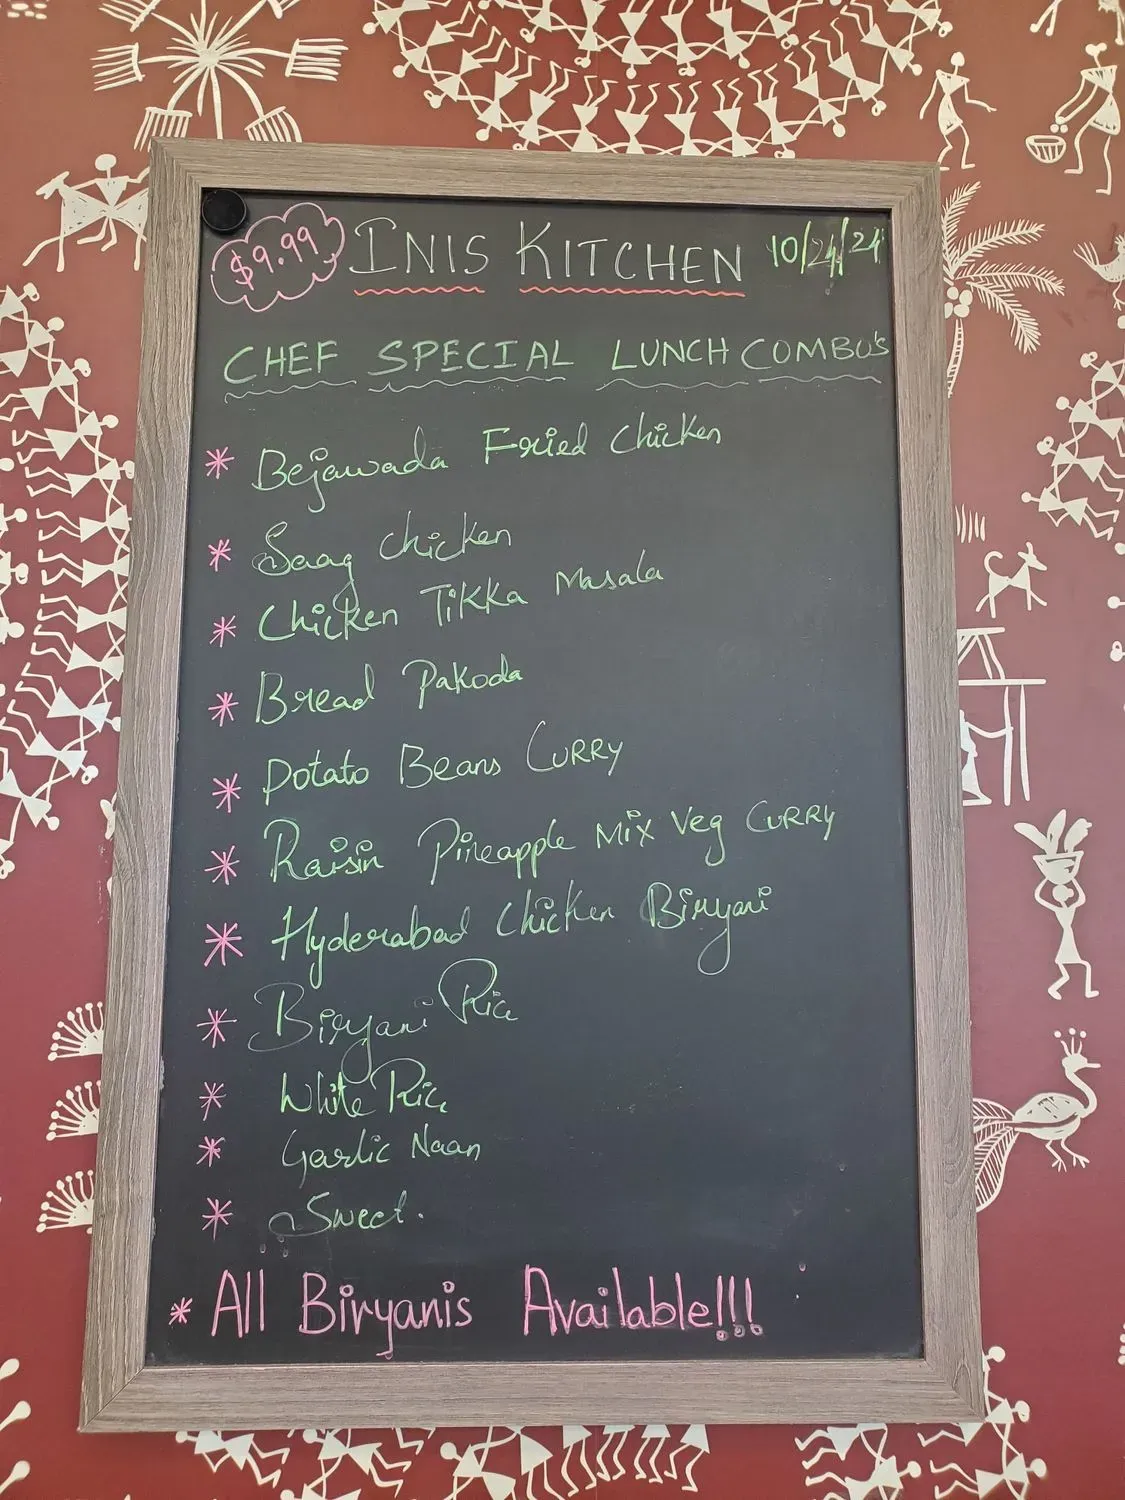 $9.99 INIS KITCHEN 10/24/24
CHEF SPECIAL LUNCH COMBO'S
* Bejawada Fried Chicken
* Saag Chicken
* Chicken Tikka Masala
* Bread Pakoda
* Potato Beans Curry
* Raisin Pineapple Mix Veg Curry
* Hyderabad Chicken Biryani
* Biryani Rice
* White Rice
* Garlic Naan
* Sweet.
* All Biryanis Available!!!